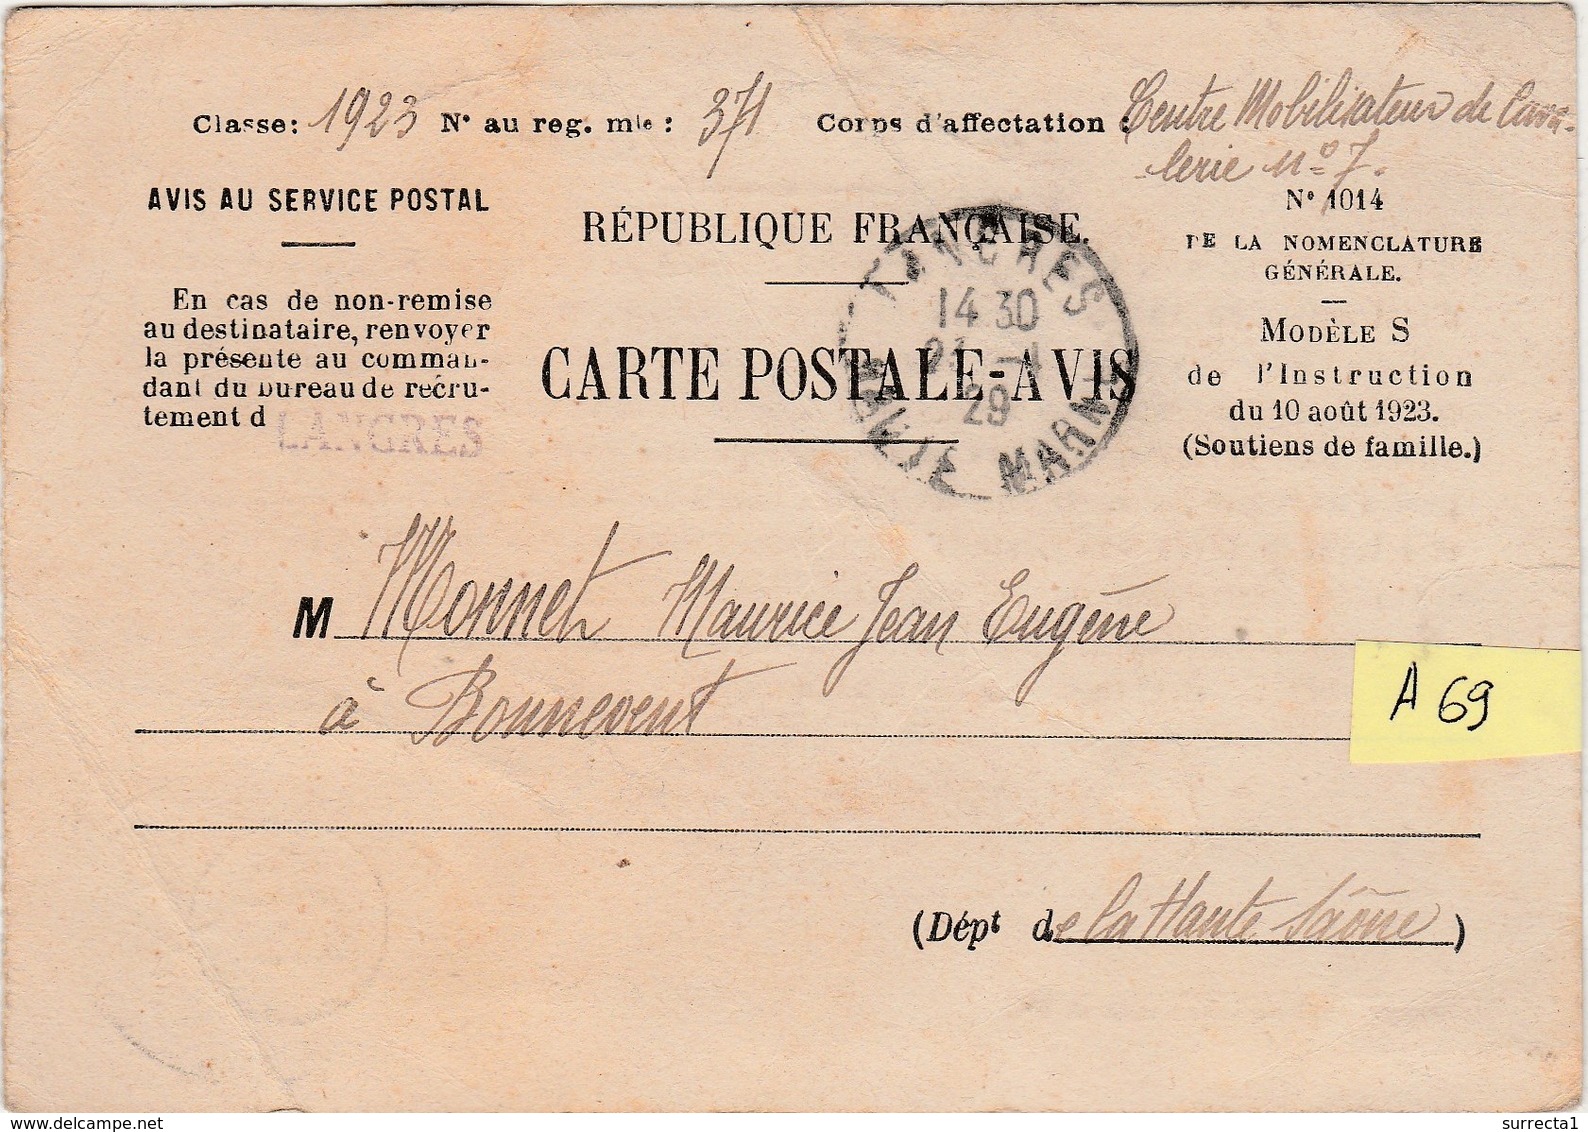 Classe: 1923 N° au reg. mle : 371 Corps d'affectation : Centre Mobilisateur de Cava-
lerie n° 7.
AVIS AU SERVICE POSTAL
En cas de non-remise
au destinataire, renvoyer
la présente au comman-
dant du bureau de recru-
tement d LANGRES
RÉPUBLIQUE FRANÇAISE.
CARTE POSTALE-AVIS
LANGRES
14 30
29
HAUTE MARNE
N° 1014
DE LA NOMENCLATURE
GÉNÉRALE.
MODÈLE S
de l'Instruction
du 10 août 1923.
(Soutiens de famille.)
M Monnet Maurice Jean Eugène
à Bonnevent
A 69
(Dépt de la Haute Saône)
www.delcampe.net
surrecta1